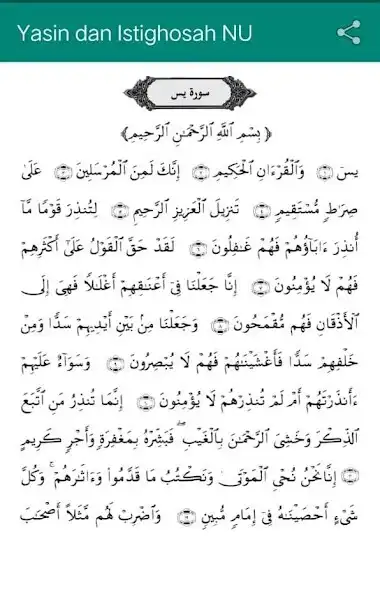 Yasin dan Istighosah NU
سورة يس
﴿ بِسْمِ ٱللَّهِ ٱلرَّحْمَٰنِ ٱلرَّحِيمِ ﴾
يسٓ ۝١ وَٱلْقُرْءَانِ ٱلْحَكِيمِ ۝٢ إِنَّكَ لَمِنَ ٱلْمُرْسَلِينَ ۝٣ عَلَىٰ
صِرَٰطٍ مُّسْتَقِيمٍ ۝٤ تَنزِيلَ ٱلْعَزِيزِ ٱلرَّحِيمِ ۝٥ لِتُنذِرَ قَوْمًا مَّآ
أُنذِرَ ءَابَآؤُهُمْ فَهُمْ غَٰفِلُونَ ۝٦ لَقَدْ حَقَّ ٱلْقَوْلُ عَلَىٰٓ أَكْثَرِهِمْ
فَهُمْ لَا يُؤْمِنُونَ ۝٧ إِنَّا جَعَلْنَا فِىٓ أَعْنَٰقِهِمْ أَغْلَٰلًا فَهِىَ إِلَى
ٱلْأَذْقَانِ فَهُم مُّقْمَحُونَ ۝٨ وَجَعَلْنَا مِنۢ بَيْنِ أَيْدِيهِمْ سَدًّا وَمِنْ
خَلْفِهِمْ سَدًّا فَأَغْشَيْنَٰهُمْ فَهُمْ لَا يُبْصِرُونَ ۝٩ وَسَوَآءٌ عَلَيْهِمْ
ءَأَنذَرْتَهُمْ أَمْ لَمْ تُنذِرْهُمْ لَا يُؤْمِنُونَ ۝١٠ إِنَّمَا تُنذِرُ مَنِ ٱتَّبَعَ
ٱلذِّكْرَ وَخَشِىَ ٱلرَّحْمَٰنَ بِٱلْغَيْبِ ۖ فَبَشِّرْهُ بِمَغْفِرَةٍ وَأَجْرٍ كَرِيمٍ
۝١١ إِنَّا نَحْنُ نُحْىِ ٱلْمَوْتَىٰ وَنَكْتُبُ مَا قَدَّمُوا۟ وَءَاثَٰرَهُمْ ۚ وَكُلَّ
شَىْءٍ أَحْصَيْنَٰهُ فِىٓ إِمَامٍ مُّبِينٍ ۝١٢ وَٱضْرِبْ لَهُم مَّثَلًا أَصْحَٰبَ